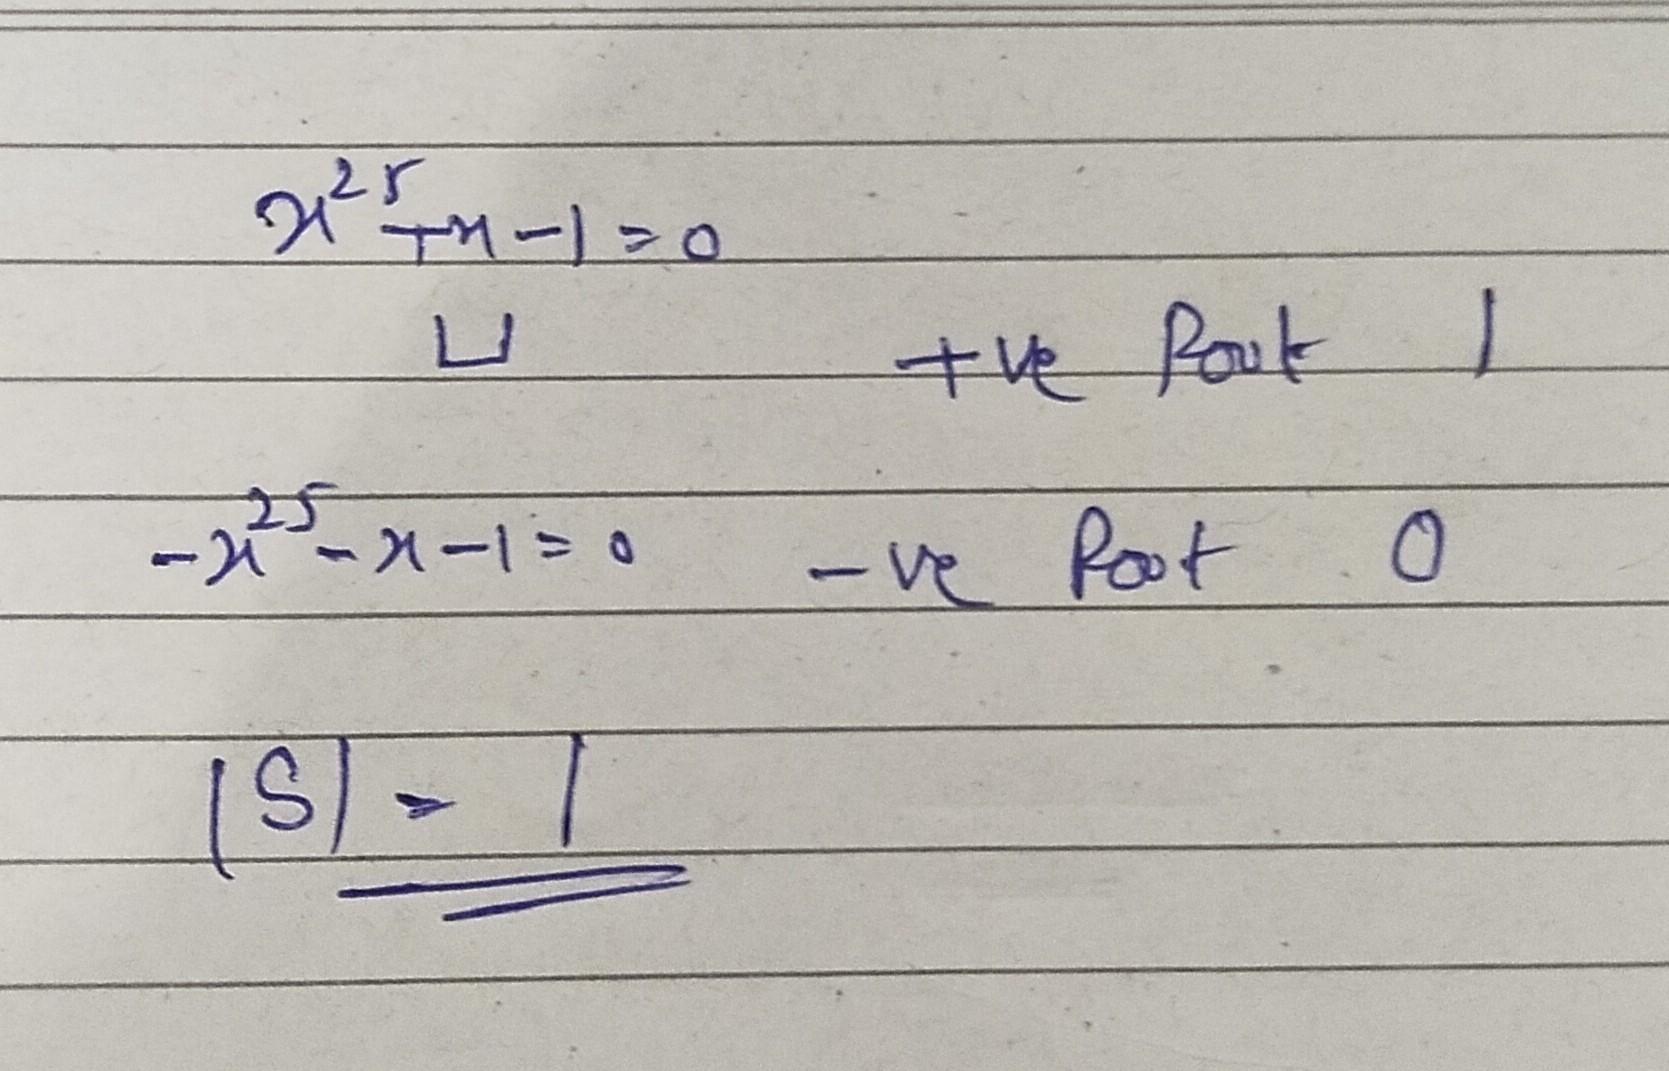 x²⁵+x-1=0
+ve Root 1
-x²⁵-x-1=0 -ve Root 0
|S| = 1